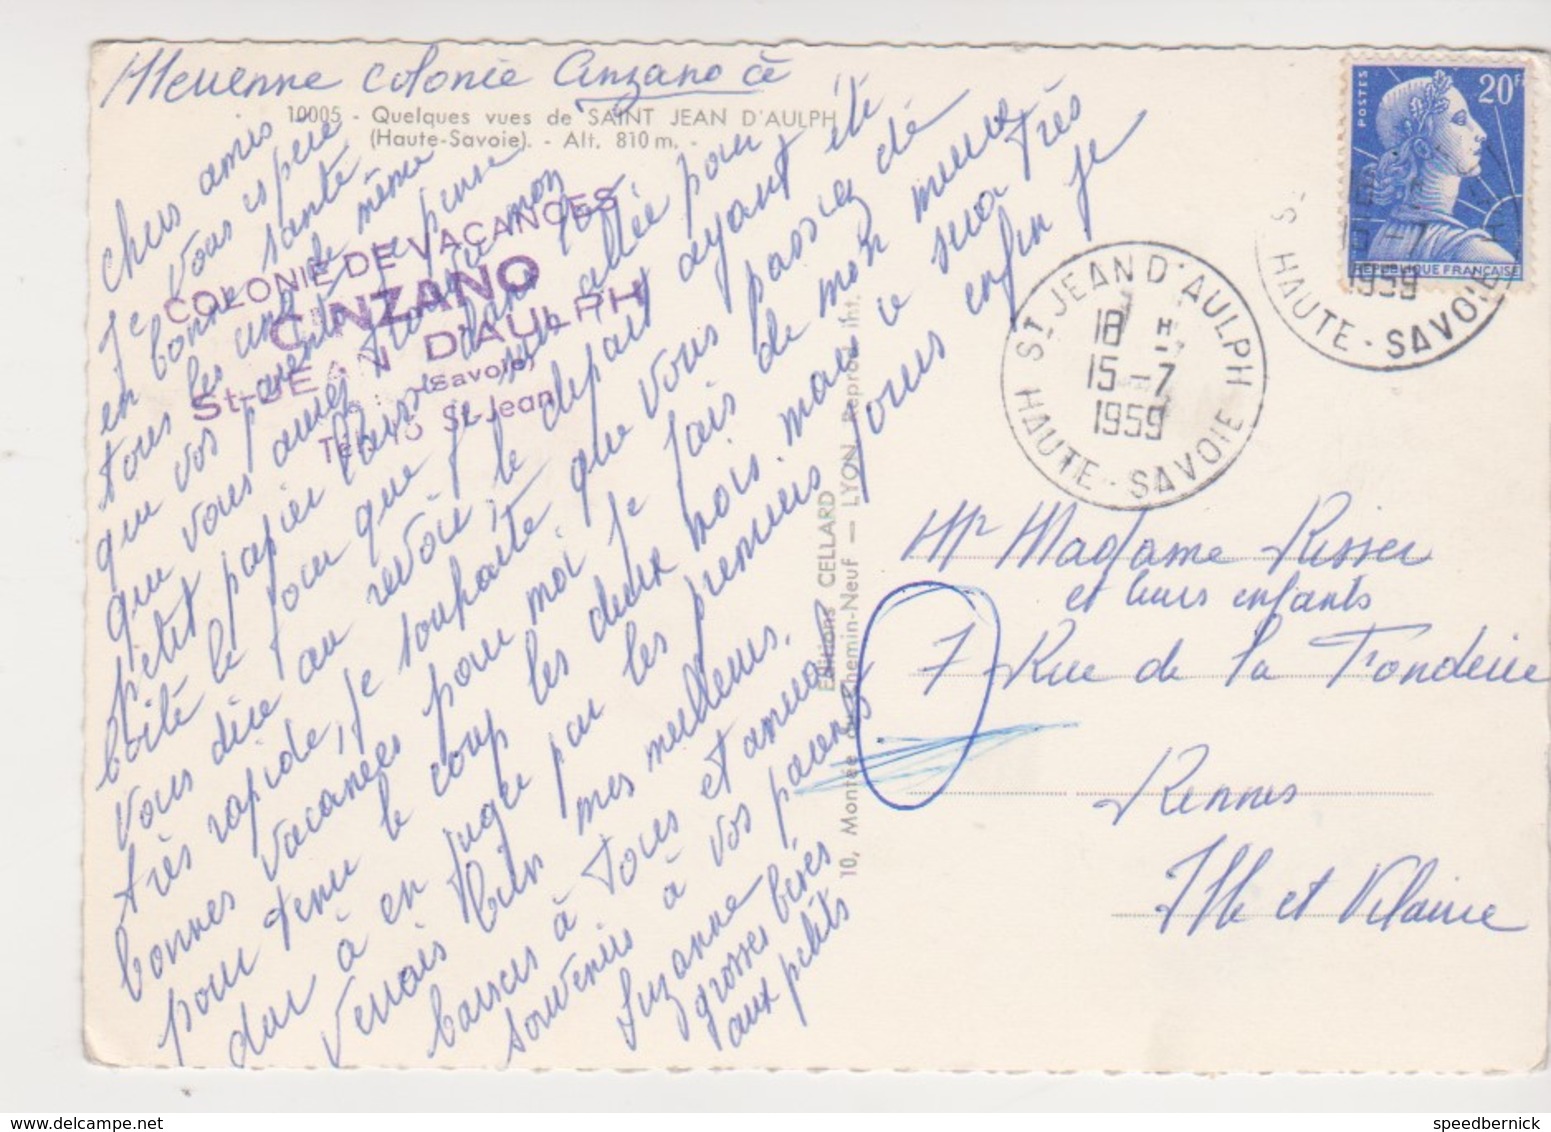 colonie Cinzano ce
10005 - Quelques vues de SAINT JEAN D'AULPH
(Haute-Savoie). - Alt. 810 m. -
COLONIE DE VACANCES
CINZANO
St-JEAN D'AULPH
Savoie)
St-Jean
chers amis
Je vous espère
en bonne santé
tous les cinq de même
que vos parents je pense
que vous avez trouvé mon
petit papier laissé dans votre
boîte le jour que je suis allée pour
vous dire au revoir, le départ ayant été
très rapide, je souhaite que vous passiez de
bonnes vacances pour moi je fais de mon mieux
pour tenir le coup les deux mois mais ce sera très
dur à en juger par les premiers jours enfin je
verrais bien mes meilleurs
baisers à tous et amical
souvenirs à vos parents
Suzanne
grosses bises
aux petits
Editions CELLARD
10, Montée du Chemin-Neuf — LYON Reprod. int.
POSTES
20F
REPUBLIQUE FRANÇAISE
ST JEAN D'AULPH
18 H
15-7
1959
HAUTE-SAVOIE
1959
HAUTE-SAVOIE
Mr Madame Risser
et leurs enfants
7 Rue de la Fonderie
Rennes
Ille et Vilaine
speedbernick